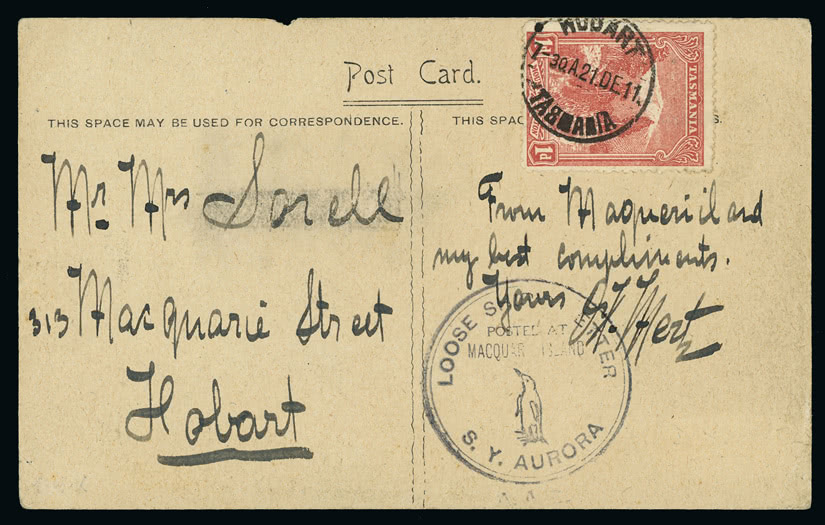 Post Card.
THIS SPACE MAY BE USED FOR CORRESPONDENCE.
Mr. Mrs Sorell
313 Macquarie Street
Hobart
THIS SPAC
S.
HOBART
7-30 A.21.DE.11.
TASMANIA
TASMANIA
1d
From Maqueriiland
my best compliments.
Yours
LOOSE S
TTER
POSTED AT
MACQUAR ISLAND
S. Y. AURORA